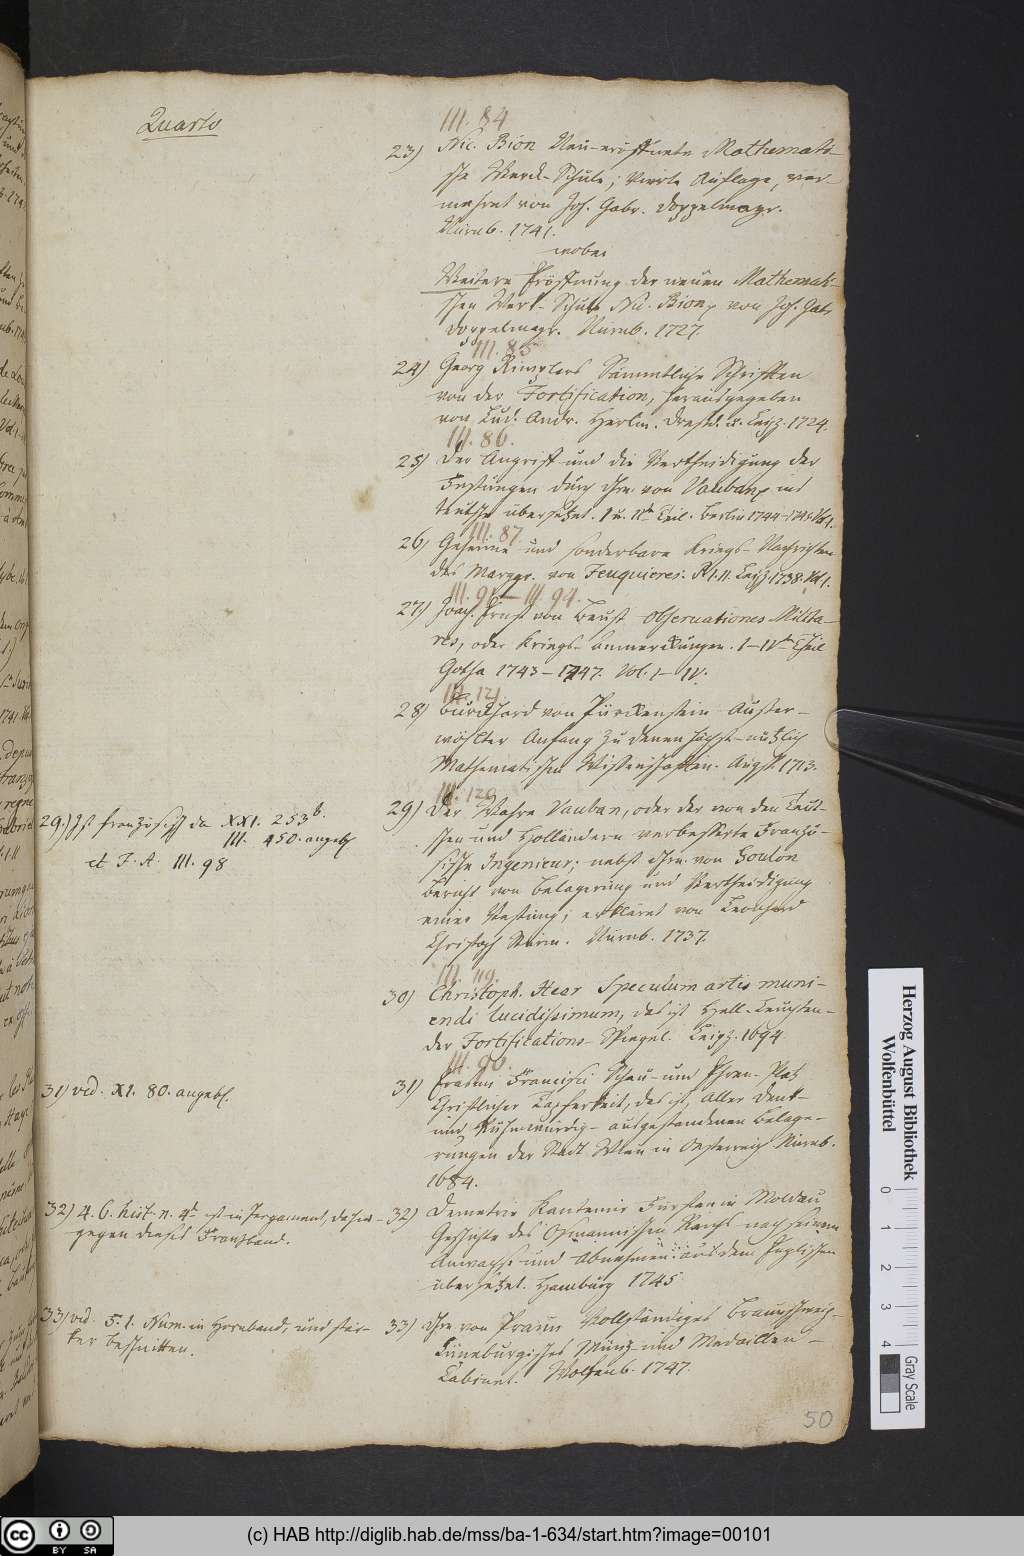 Quarto
III. 84
23) Nic. Bion Neu-eröffnete Mathemati-
sche Werck-Schule; vierte Auflage, ver-
mehret von Joh. Gabr. Doppelmayr.
Nürnb. 1741.
wobei
Weitere Eröffnung der neuen Mathemati-
schen Werk-Schule Nic. Bions von Joh. Gabr.
Doppelmayr. Nürnb. 1727.
III. 85
24) Georg Rimplers Sämmtliche Schriften
von der Fortification, herausgegeben
von Lud. Andr. Herlin. Dresd. u. Leipz. 1724.
III. 86.
25) Der Angriff und die Vertheidigung der
Festungen durch Hrn. von Vauban, ins
teutsche übersetzet. I u. IIte Theil. Berlin 1744-1745. Vol. 1.
III. 87.
26) Geheime und sonderbare Kriegs-Nachrichten
des Marggr. von Feuquieres. P. I. II. Leipz. 1738. Vol. 1.
III. 91 — III. 94.
27) Joach. Ernst von Beust Observationes Milita-
res, oder Kriegs-Anmerckungen. I-IVte Theil
Gotha 1743-1747. Vol. I-IV.
III. 121.
28) Burckhard von Pürckenstein Auser-
wöhlter Anfang zu denen höchst-nutzlich
Mathematischen Wissenschafften. Augsb. 1713.
III. 120
29.) Ist französisch da XXI. 253b.
III. 450. angebl.
et F. A. III. 98
29) Der Wahre Vauban, oder der von den Teut-
schen und Holländern verbesserte Franzö-
sische Ingenieur; nebst Hrn. von Goulon
Bericht von Belagerung und Vertheidigung
einer Vestung; erkläret von Leonhard
Christoph Sturm. Nürnb. 1737.
III. 119.
30) Christoph. Heer Speculum artis muni-
endi lucidissimum, das ist Hell-Leuchten-
der Fortifications-Spiegel. Leipz. 1694.
III. 90.
31) ved. XI. 80. angebl.
31) Erasmi Francisci Schau- und Ehren-Platz
Christlicher Tapferkeit, das ist, Aller Denk-
und Ruhmwürdig-ausgestandenen Belage-
rungen der Stadt Wien in Oesterreich. Nürnb.
1684.
32) 4. 6. hist. n. 4to ist in Pergament, dahin-
gegen dieses Franzband.
32) Demetrie Kantemir Fürsten in Moldau
Geschichte des Osmannischen Reichs nach seinem
Anwachse und Abnehmen: aus dem Englischen
übersetzet. Hamburg 1745
33) ved. 5. 1. Num. in Hornband, und stär-
ker beschnitten.
33) Hrn. von Praun Vollständiges Braunschweig-
Lüneburgisches Münz- und Medaillen-
Cabinet. Wolfenb. 1747.
50
Herzog August Bibliothek
Wolfenbüttel
0 1 2 3 4
Gray Scale
cc BY SA
(c) HAB http://diglib.hab.de/mss/ba-1-634/start.htm?image=00101